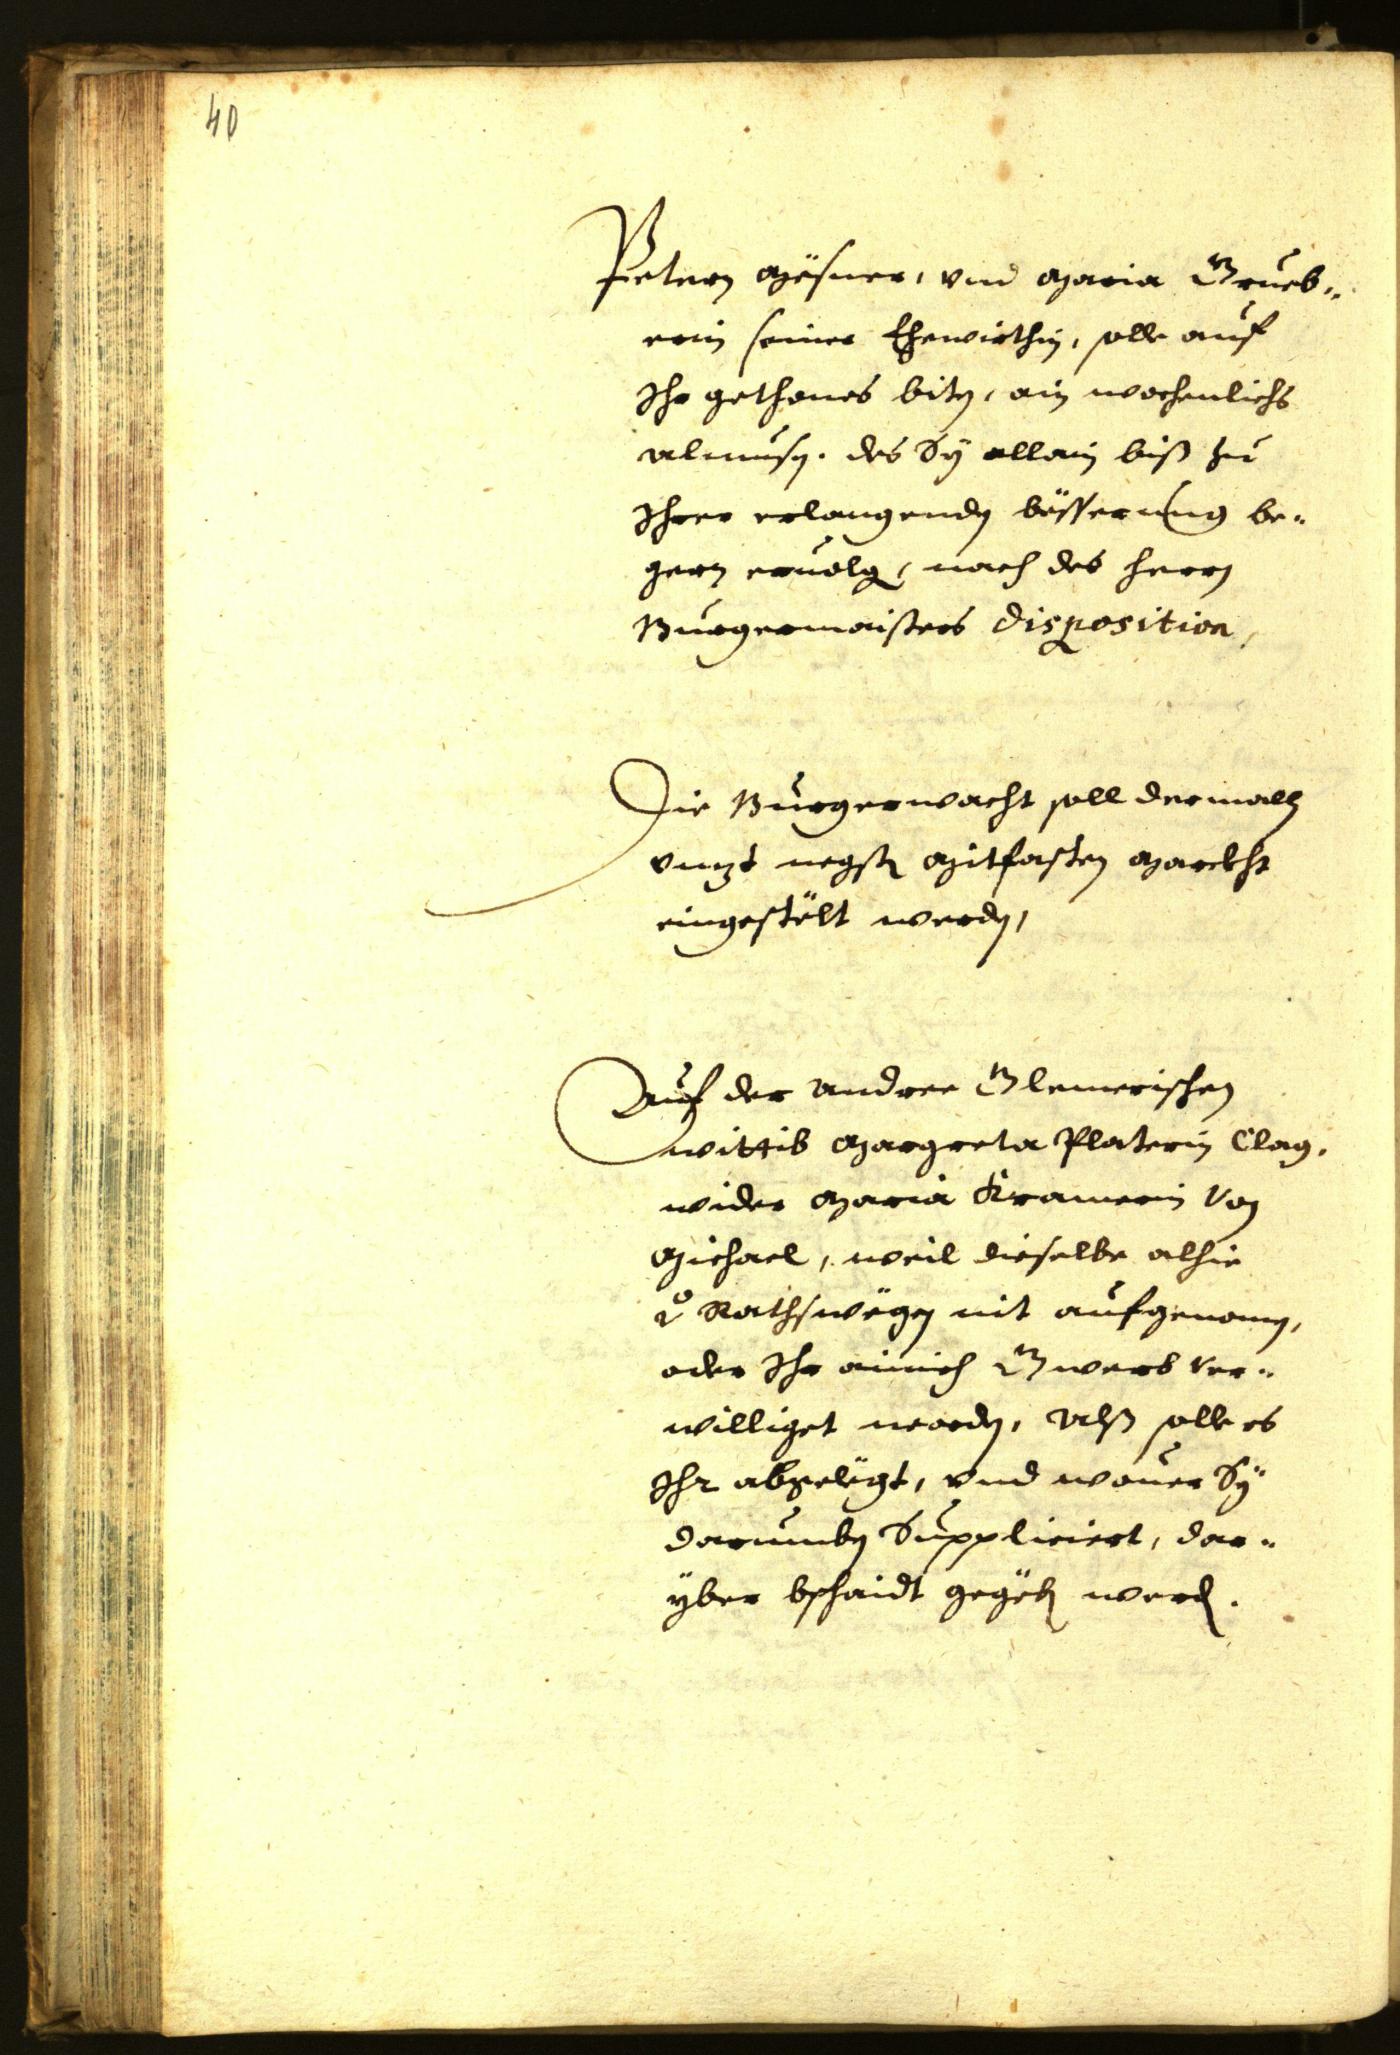 40
Petern Mësner, vnd Maria Grueb„
erin seiner Ehewirthin, solle auf
Ihr gethones biten, ain wochenlichs
almusen. des Sÿ allain biß zu
Ihrer erlangenden bësserung be„
gern eruolgen, nach des herrn
Burgermaisters disposition,
Die Burgerwacht soll dermalln
vnzt negsten Mitfasten Marckht
eingestëlt werden,
Auf der Andree Glemerischen
wittib Margreta Platerin Clag,
wider Maria Kramerin Von
Michael, weil dieselbe alhie
Rathswëgen nit aufgenomen,
oder Ihr ainich Gwerb ver„
williget worden, Alß solle es
Ihr abgelëgt, vnd wouer Sÿ
darumben Suppliciert, dar„
yber bschaidt gegëben werden.